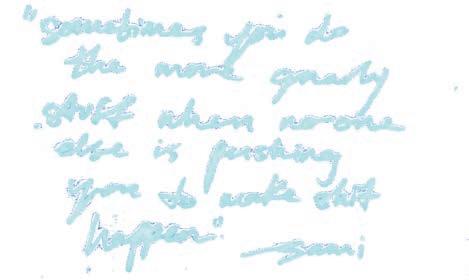 "Sometimes you do
the more gnarly
stuff when no one
else is pushing
you to make shit
happen"